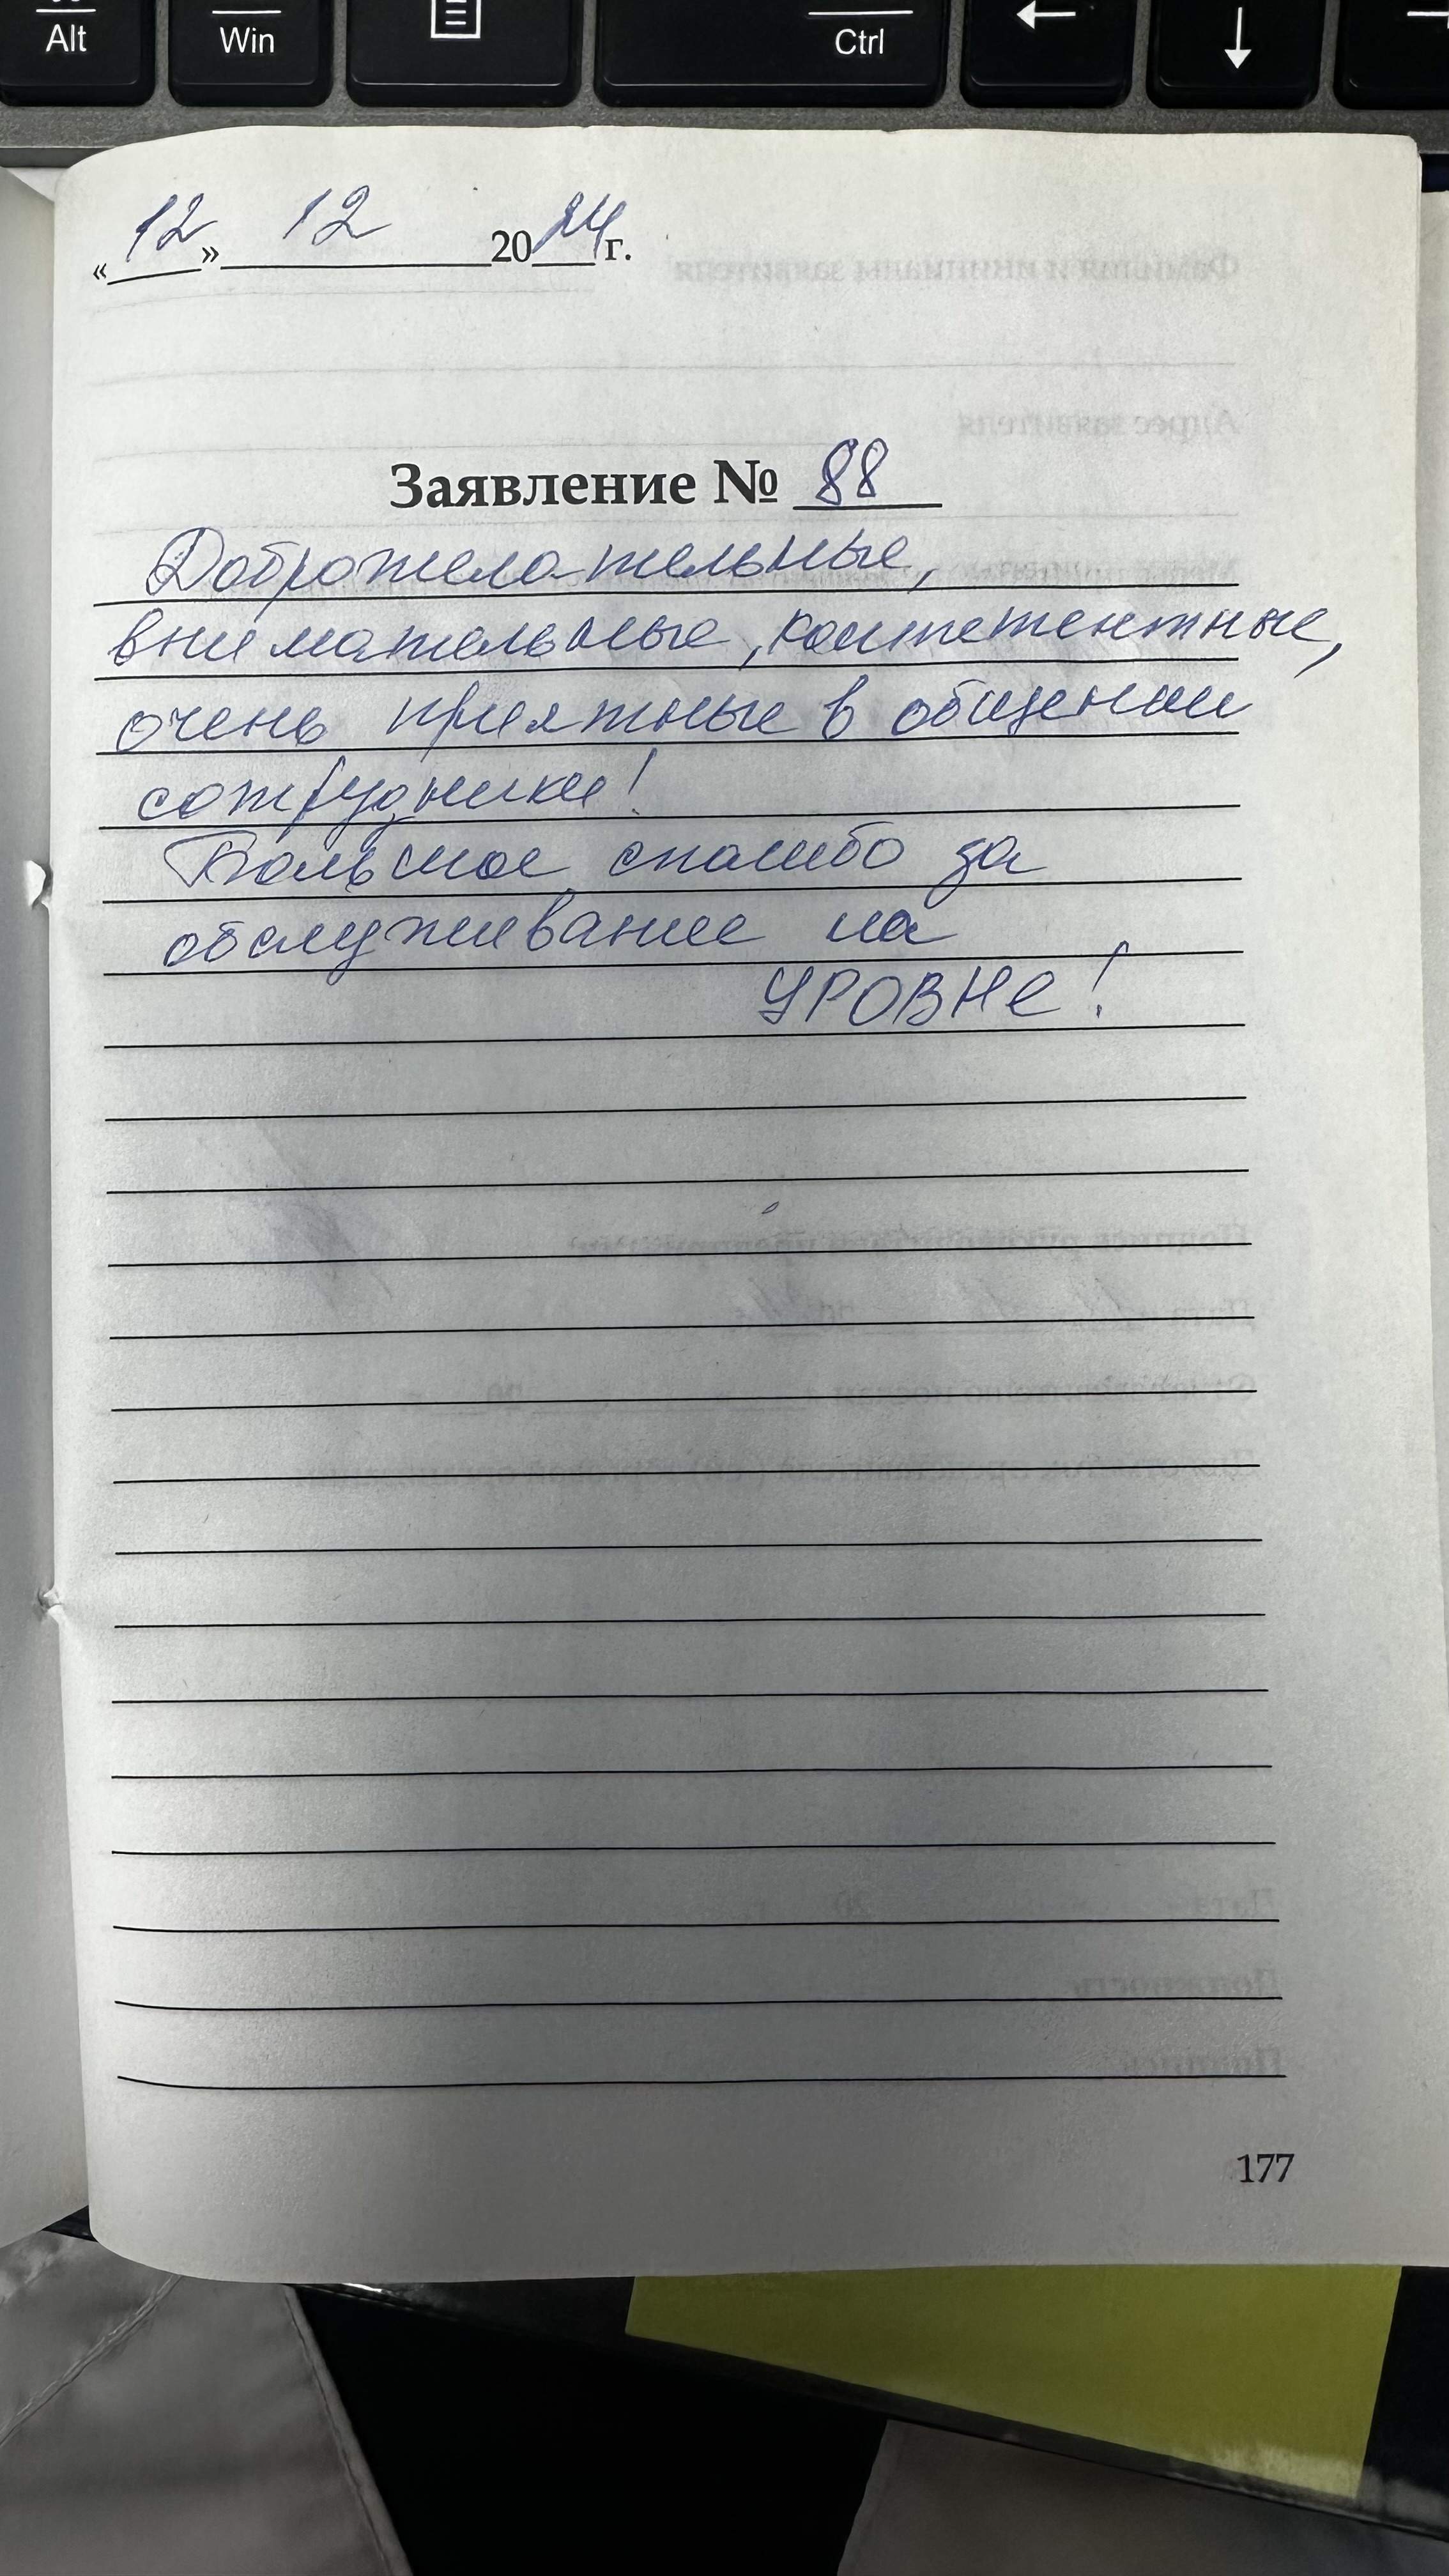 Alt Win Ctrl
«12» 12 2024г.
Заявление № 88
Доброжелательные,
внимательные, компетентные,
очень приятные в общении
сотрудники!
Большое спасибо за
обслуживание на
УРОВНЕ!
177